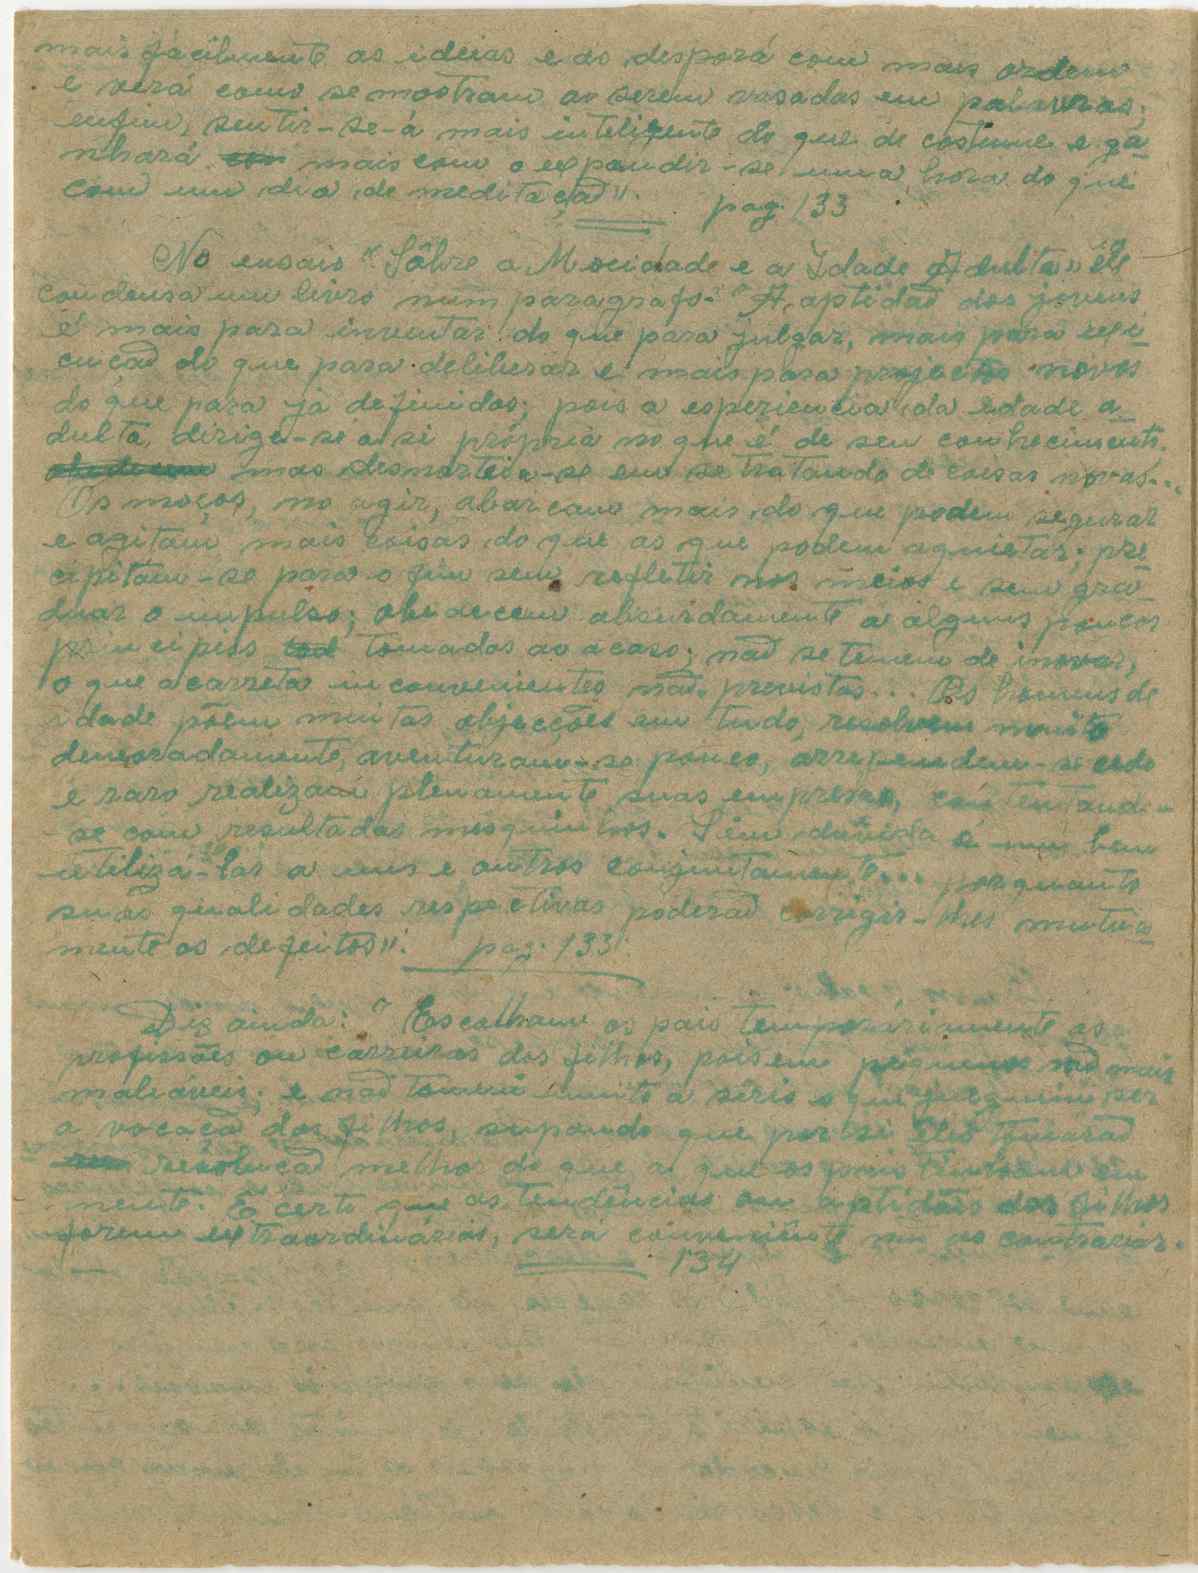 mais fácilmente as ideias e as desporá com mais ordem
e verá como se mostram ao serem vasadas em palavras;
enfim, sentir-se-á mais inteligente do que de costume e ga-
nhará com mais com o expandir-se uma hora do que
com um dia de meditação".
pag. 133
No ensaio "Sôbre a Mocidade e a Idade Adulta" êle
condensa um livro num paragrafo. "A aptidão dos jovens
é mais para inventar do que para julgar, mais para exe-
cução do que para deliberar e mais para projectos novos
do que para já definidos; pois a experiencia da idade a-
dulta, dirige-se a si própria no que é de seu conhecimento.
obedecem mas desnorteia-se em se tratando de coisas novas...
Os moços, no agir, abarcam mais do que podem segurar
e agitam mais coisas do que as que podem aquietar; pre-
cipitam-se para o fim sem refletir nos meios e sem gra-
duar o impulso; obedecem absurdamente a alguns poucos
principios tod tomados ao acaso; não se temem de inovar,
o que acarreta inconvenientes não previstos... Os homens de
idade põem muitas objecções em tudo, resolvem muito
demoradamente, aventuram-se pouco, arrependem-se cedo
e raro realizam plenamente suas empresas, contentando-
se com resultados mesquinhos. Sem duvida é um bem
utilizá-los a uns e outros conjuntamente... porquanto
suas qualidades respectivas poderão corrigir-lhes mutua-
mente os defeitos".
pag. 133.
Diz ainda: "Escolham os pais temporariamente as
profissões ou carreiras dos filhos, pois em pequenos são mais
maliáveis; e não tomem muito a sério o que julguem ser
a vocação dos filhos, supondo que por si êles tomarão
resolução melhor do que a que os pais tinham em
mente. É certo que as tendências ou aptidões dos filhos
forem extraordinárias, será conveniente não as contrariar.
134